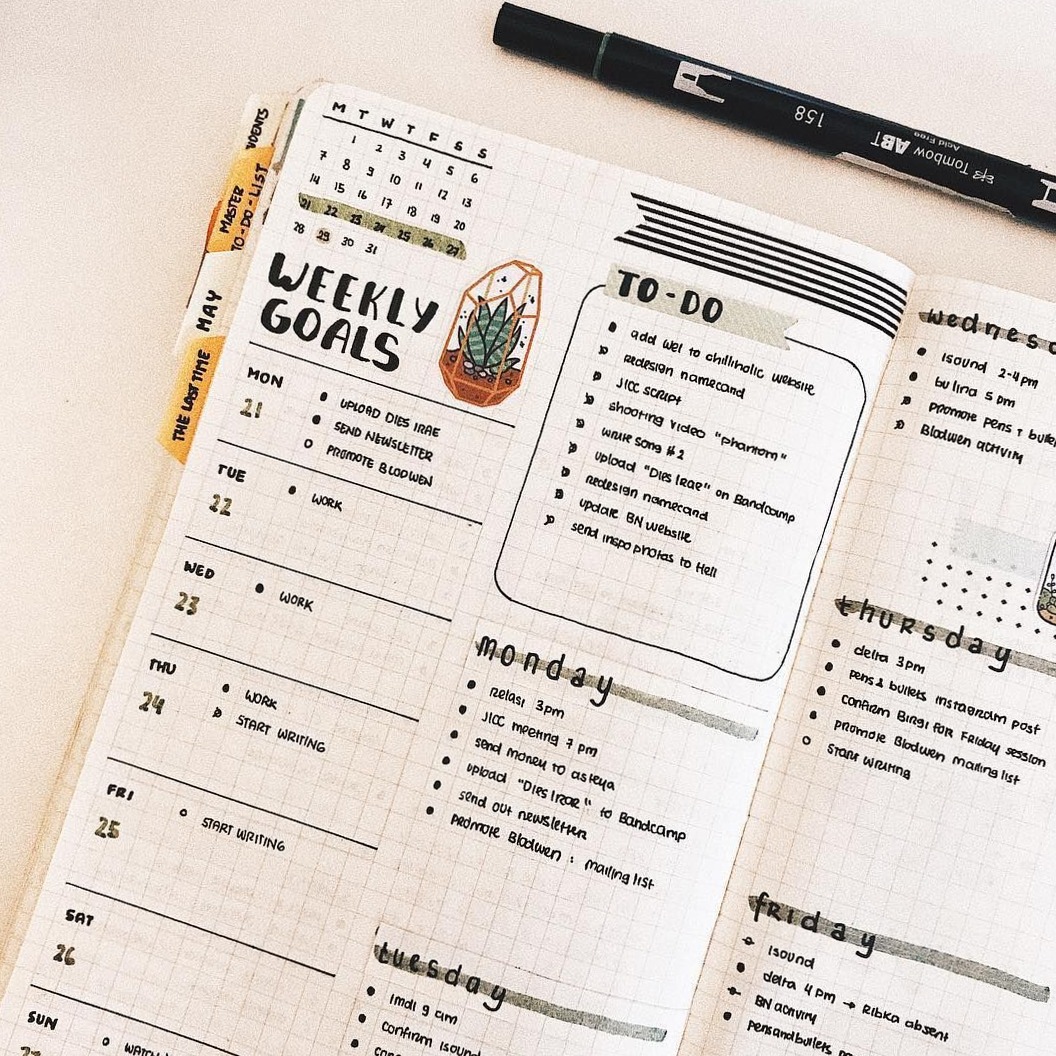 158
Tombow ABT
Acid Free
MASTER
TO-DO-LIST
MAY
THE LAST TIME
M T W T F S S
1 2 3 4 5 6
7 8 9 10 11 12 13
14 15 16 17 18 19 20
21 22 23 24 25 26 27
28 29 30 31
WEEKLY
GOALS
MON
21
UPLOAD DIES IRAE
SEND NEWSLETTER
PROMOTE BLODWEN
TUE
22
WORK
WED
23
WORK
THU
24
WORK
START WRITING
FRI
25
START WRITING
SAT
26
SUN
TO-DO
add Wei to chilliholic website
redesign namecard
JICC script
shooting video "phantom"
write song #2
upload "Dies Irae" on Bandcamp
redesign namecard
update BN website
send inspo photos to Hell
monday
relasi 3pm
JICC meeting 7 pm
send money to asteya
upload "Dies Irae" to Bandcamp
send out newsletter
promote Blodwen : mailing list
tuesday
1mdi 9 am
confirm isound
wednes
isound 2-4pm
bulind 5 pm
promote pens +
Blodwen activity
thursday
delta 3pm
pens & bullets instagram post
confirm Birgi for Friday session
promote Blodwen mailing list
start writing
friday
isound
delta 4pm → Ribka absent
BN activity
pensandbullets